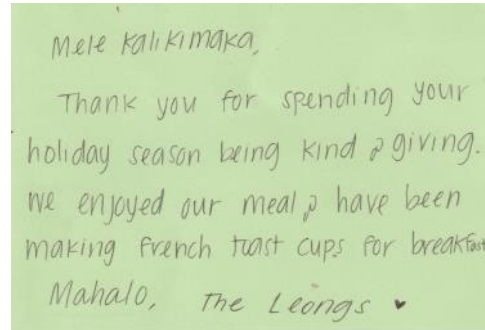 Mele Kalikimaka,
Thank you for spending your
holiday season being kind & giving.
We enjoyed our meal & have been
making french toast cups for breakfast
Mahalo, The Leongs ♥